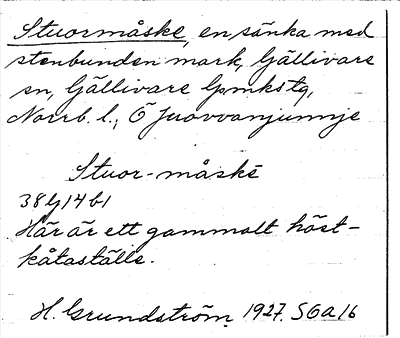 Stuormåske, en sänka med
stenbunden mark, Gällivare
sn, Gällivare lpmkstg,
Norrb. l., Ö Juovvanjunnje
Stuor-måskē
38 14 b1
Här är ett gammalt höst-
kåtaställe.
H. Grundström 1927. SGa 16